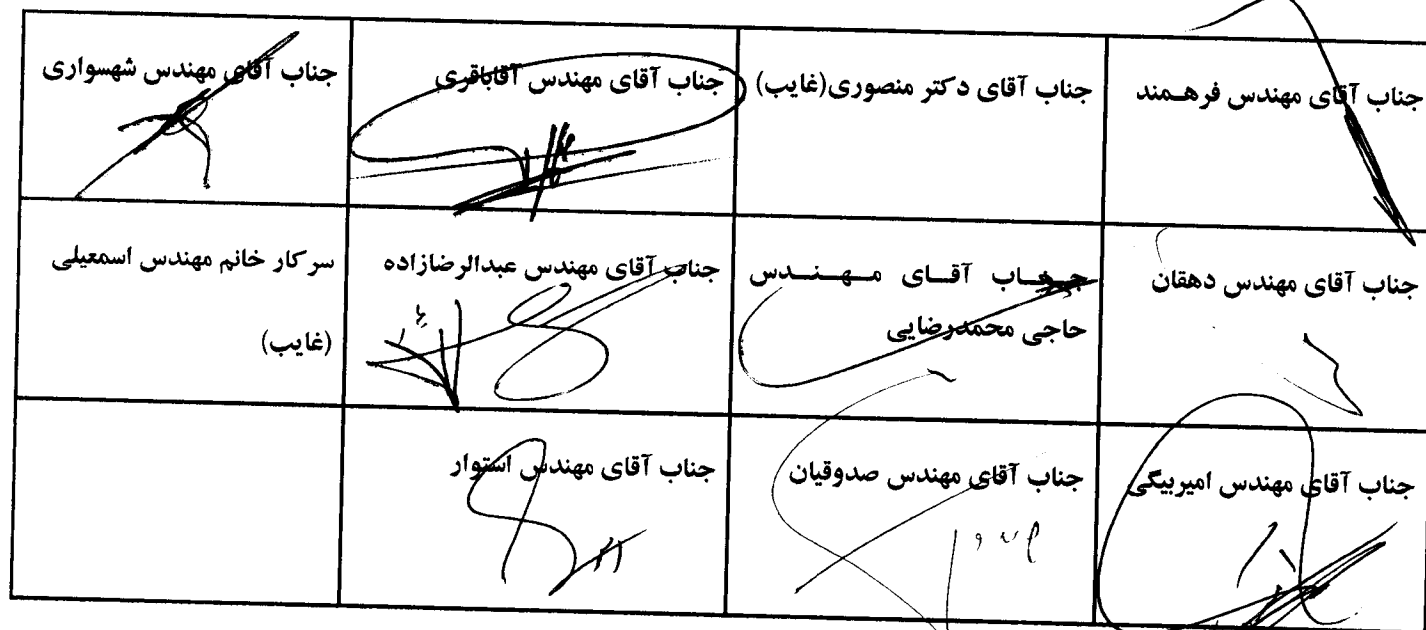 جناب آقای مهندس فرهمند
جناب آقای دکتر منصوری(غایب)
جناب آقای مهندس آقاباقری
جناب آقای مهندس شهسواری
جناب آقای مهندس دهقان
جناب آقای مهندس
حاجی محمدرضایی
جناب آقای مهندس عبدالرضازاده
سرکار خانم مهندس اسمعیلی
(غایب)
جناب آقای مهندس امیربیگی
جناب آقای مهندس صدوقیان
جناب آقای مهندس استوار